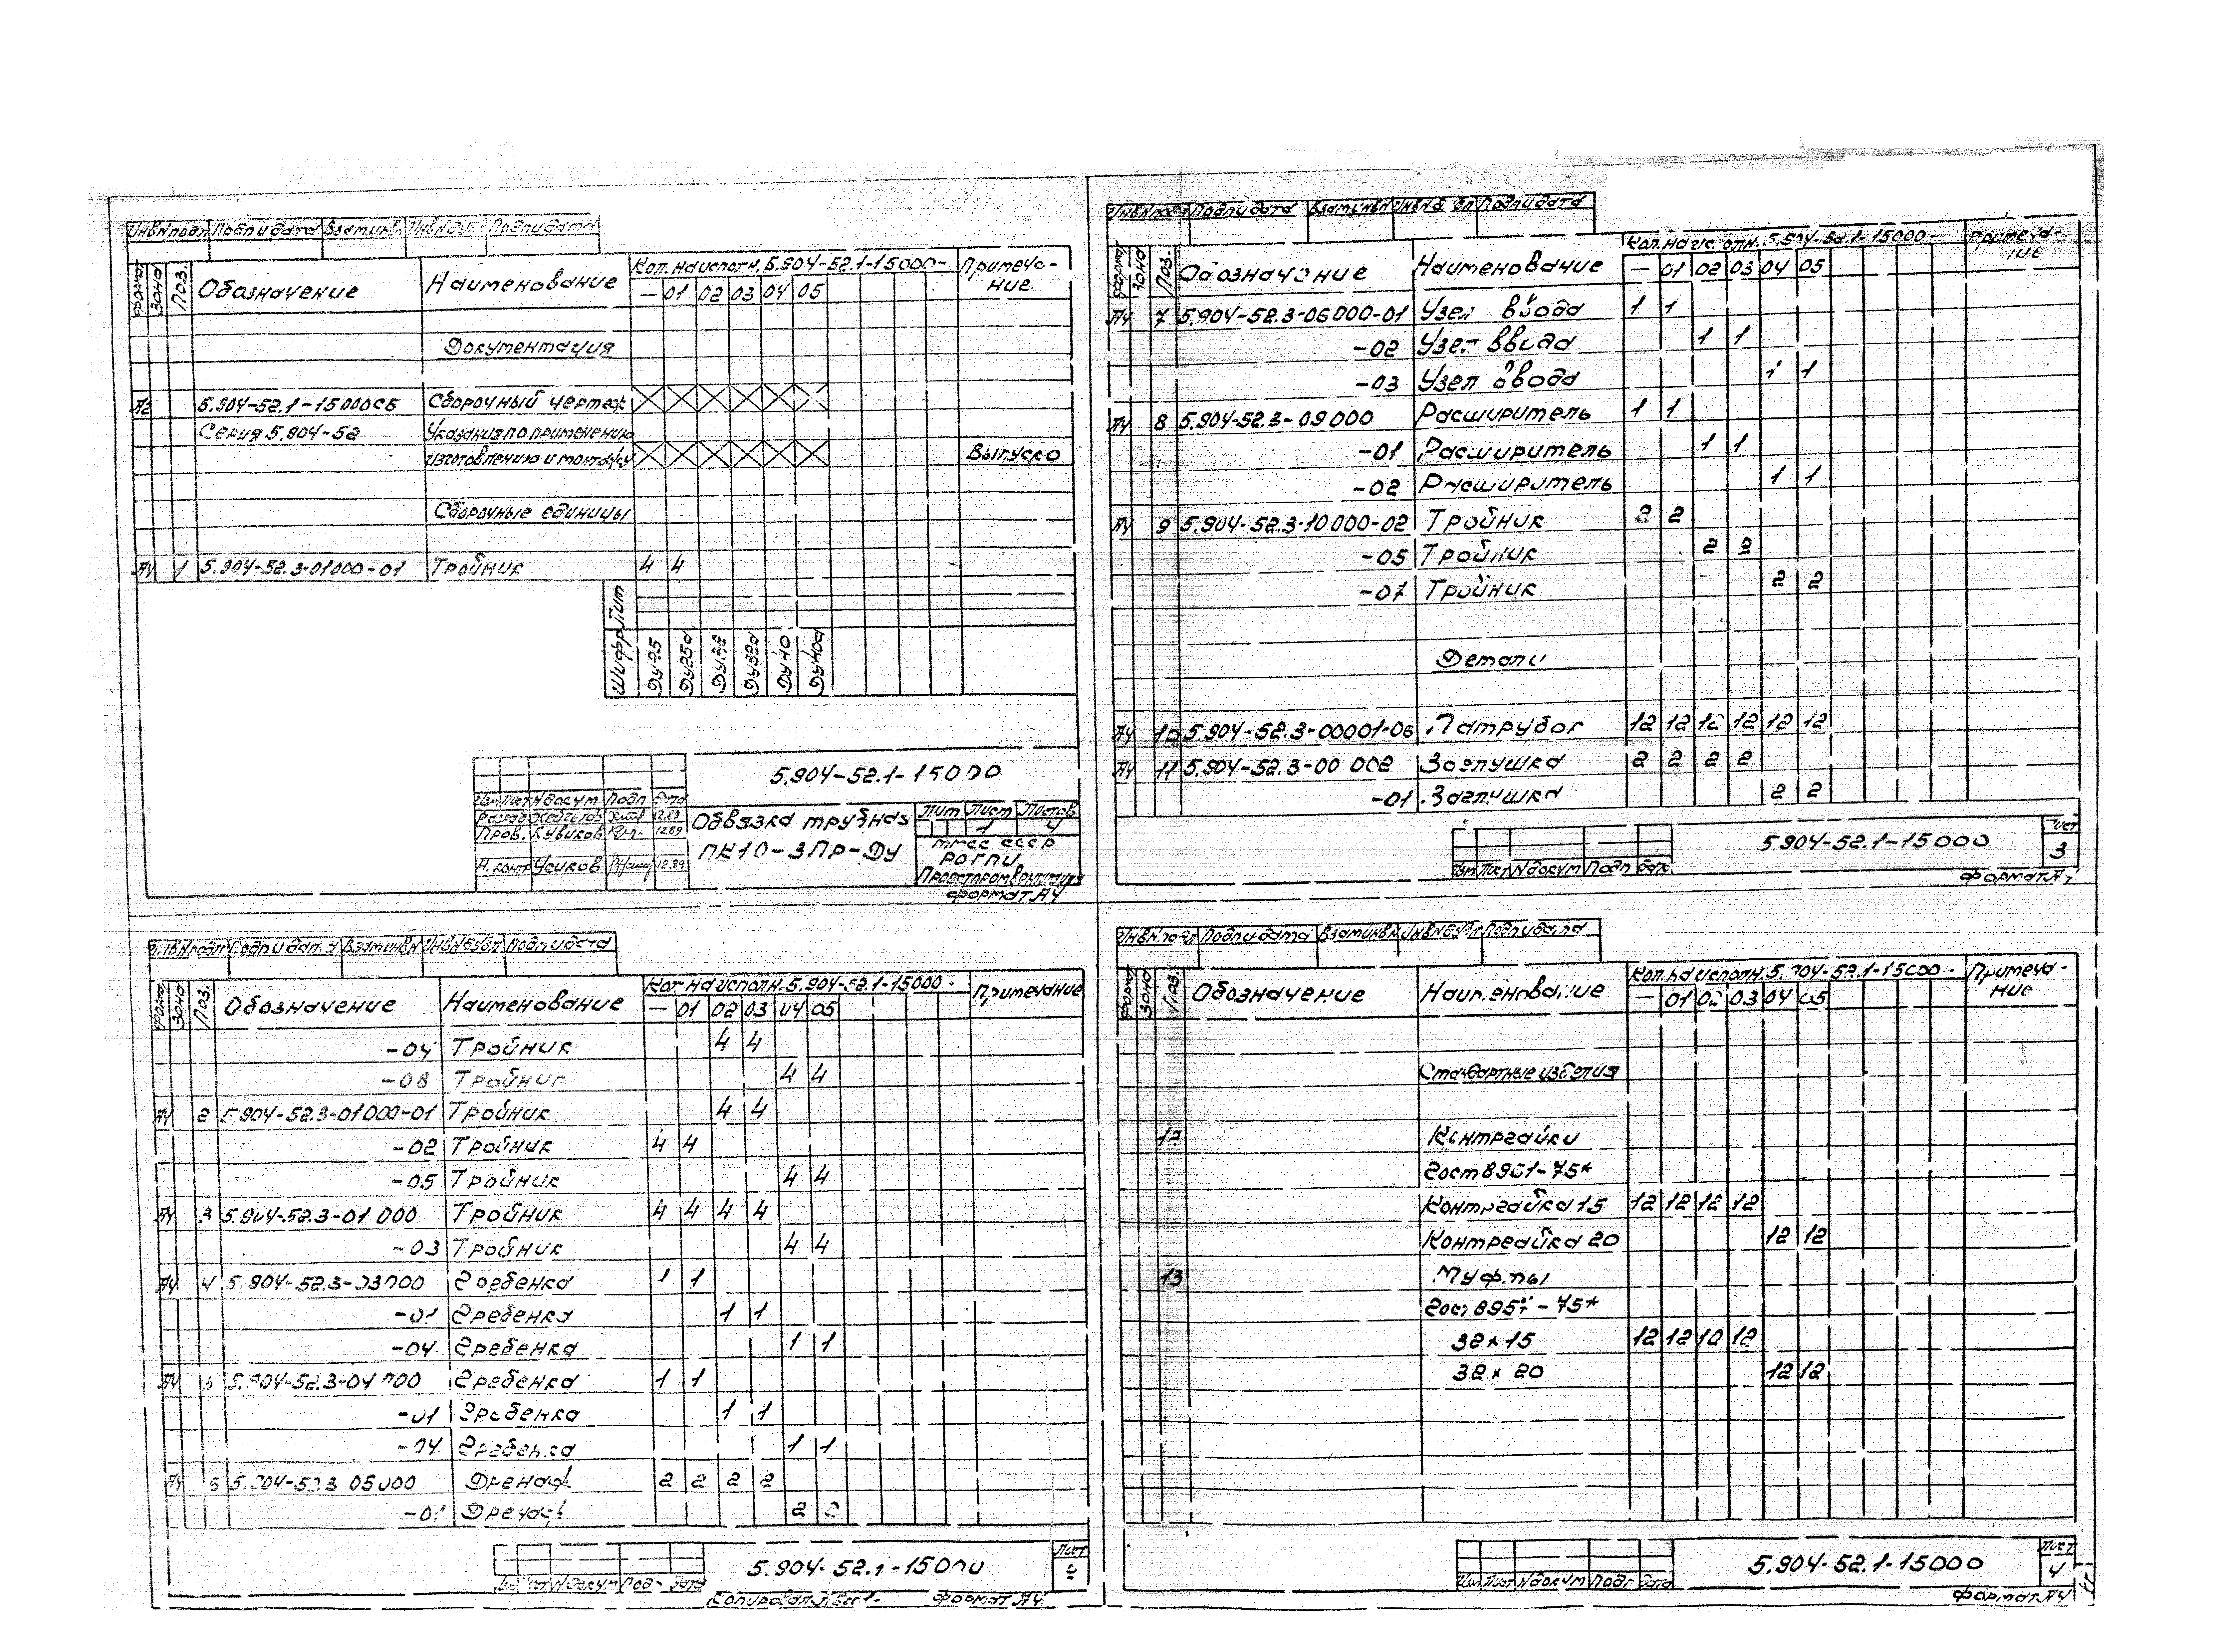 Инв.N подл Подп и дата Взам инв N Подп и дата
Формат Зона Поз. Обозначение Наименование Кол. на исполн. 5.904-52.1-15000- Примеча-ние
— 01 02 03 04 05
Документация
А2 5.904-52.1-15000СБ Сборочный чертеж
Серия 5.904-52 Указания по применению
изготовлению и монтажу Выпуск 0
Сборочные единицы
А4 1 5.904-52.3-01000-01 Тройник 4 4
Шифр Лит
Ду25 Ду25а Ду32 Ду32а Ду40 Ду40а
5.904-52.1-15000
Изм Лист N докум Подп Дата
Разраб 12.89
Пров. Кувиков 12.89
Н. контр Усиков 12.89
Обвязка трубная
ПК10-3Пр-Ду
Лит Лист Листов
1 4
СССР
Формат А4
Инв.N подл Подп и дата Взам инв N Подп и дата
Формат Зона Поз. Обозначение Наименование Кол. на исполн. 5.904-52.1-15000- Примечание
— 01 02 03 04 05
-04 Тройник 4 4
-08 Тройник 4 4
А4 2 5.904-52.3-01000-01 Тройник 4 4
-02 Тройник 4 4
-05 Тройник 4 4
А4 3 5.904-52.3-01000 Тройник 4 4 4 4
-03 Тройник 4 4
А4 4 5.904-52.3-03000 Гребенка 1 1
-01 Гребенка 1 1
-04 Гребенка 1 1
А4 5 5.904-52.3-04000 Гребенка 1 1
-01 Гребенка 1 1
-04 Гребенка 1 1
А4 6 5.904-52.3-05000 Дренаж 2 2 2 2
-01 Дренаж 2 2
5.904-52.1-15000
Лист
2
Изм Лист N докум Подп Дата
Копировал Формат А4
Инв.N подл Подп и дата Взам инв N Подп и дата
Формат Зона Поз. Обозначение Наименование Кол. на исполн. 5.904-52.1-15000- Примеча-ние
— 01 02 03 04 05
А4 7 5.904-52.3-06000-01 Узел ввода 1 1
-02 Узел ввода 1 1
-03 Узел ввода 1 1
А4 8 5.904-52.3-09000 Расширитель 1 1
-01 Расширитель 1 1
-02 Расширитель 1 1
А4 9 5.904-52.3-10000-02 Тройник 2 2
-05 Тройник 2 2
-07 Тройник 2 2
Детали
А4 10 5.904-52.3-00001-06 Патрубок 12 12 12 12 12 12
А4 11 5.904-52.3-00002 Заглушка 2 2 2 2
-01 Заглушка 2 2
5.904-52.1-15000
Лист
3
Изм Лист N докум Подп Дата
Формат А4
Инв.N подл Подп и дата Взам инв N Подп и дата
Формат Зона Поз. Обозначение Наименование Кол. на исполн. 5.904-52.1-15000- Примеча-ние
— 01 02 03 04 05
Стандартные изделия
12 Контргайки
Гост 8961-75*
Контргайка 15 12 12 12 12
Контргайка 20 12 12
13 Муфты
Гост 8957-75*
32 x 15 12 12 10 12
32 x 20 12 12
5.904-52.1-15000
Лист
4
Изм Лист N докум Подп Дата
Формат А4